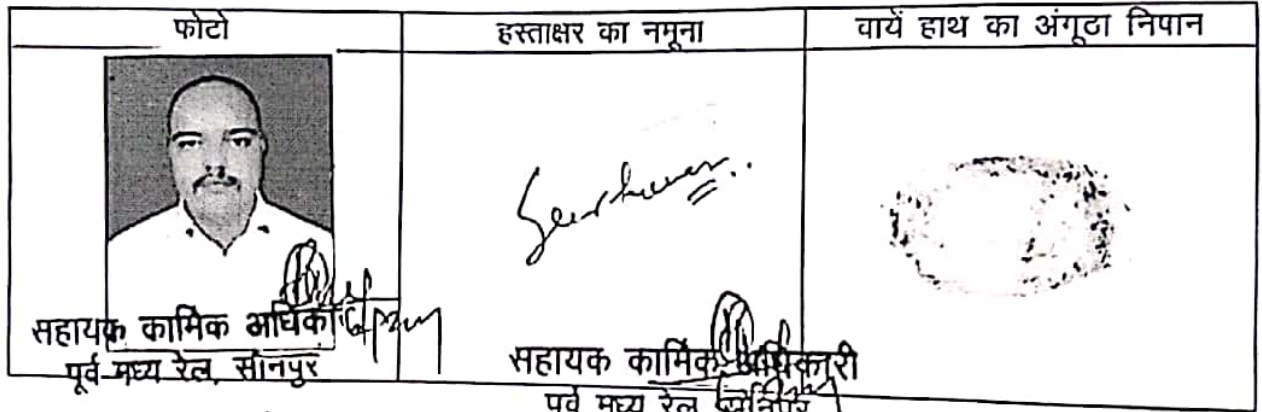 फोटो
हस्ताक्षर का नमूना
वायें हाथ का अंगूठा निपान
सहायक कार्मिक अधिकारी
पूर्व मध्य रेल, सोनपुर
सहायक कार्मिक अधिकारी
पूर्व मध्य रेल सोनपुर